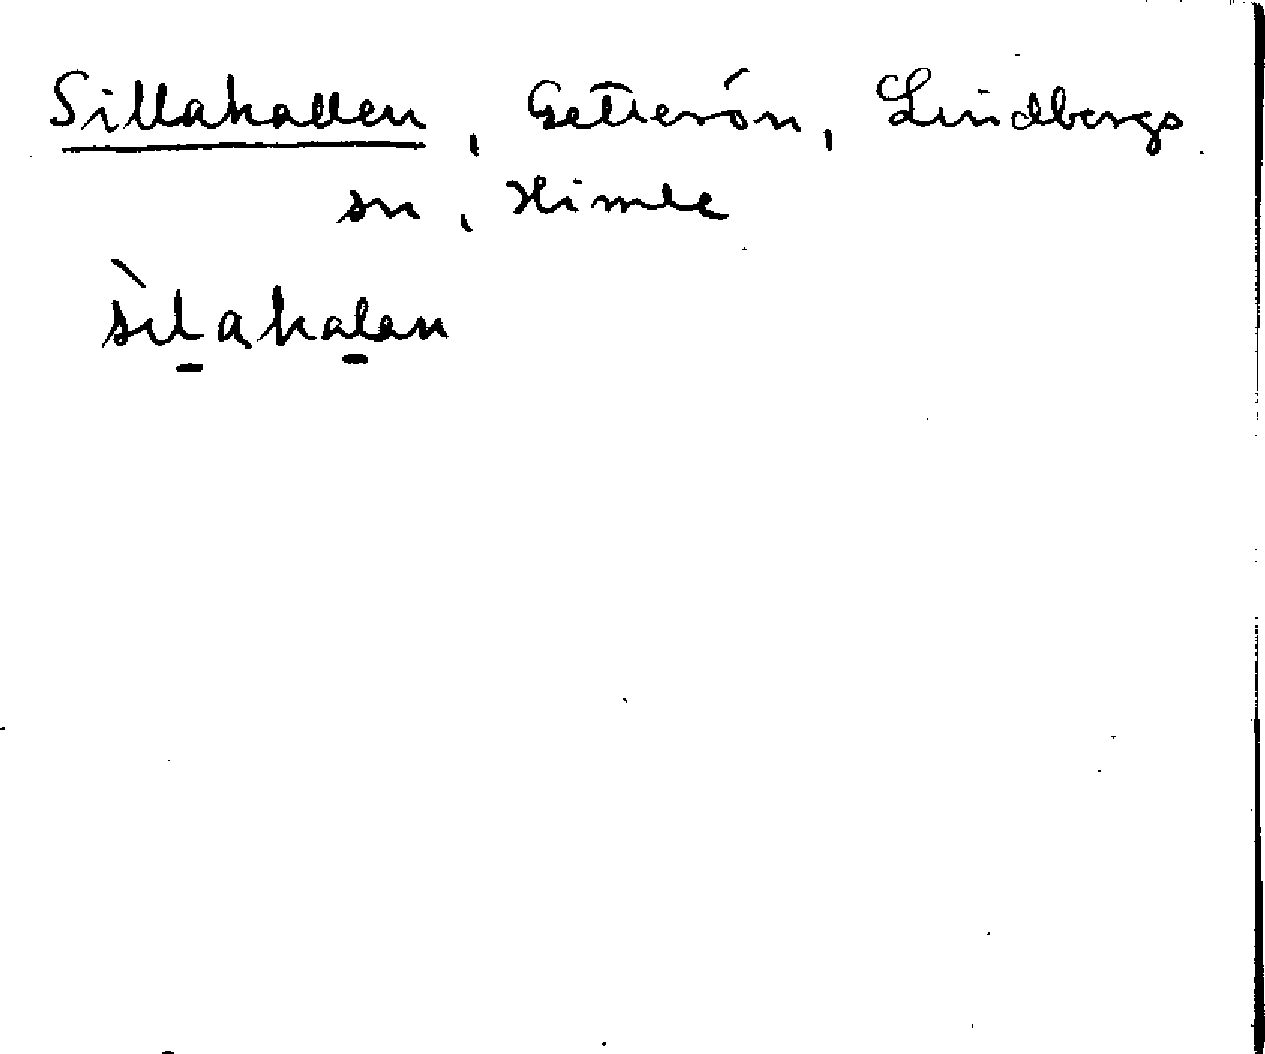 Sillahallen, Getterön, Lindbergs
sn, Himle
sìl̲ahal̲an